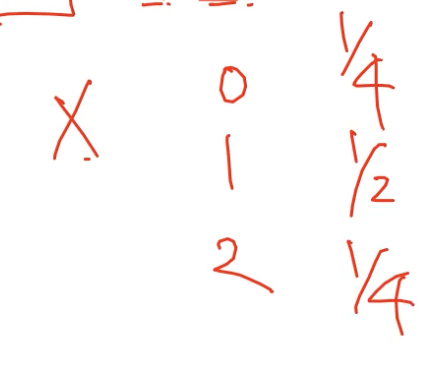 X 0 1/4
1 1/2
2 1/4